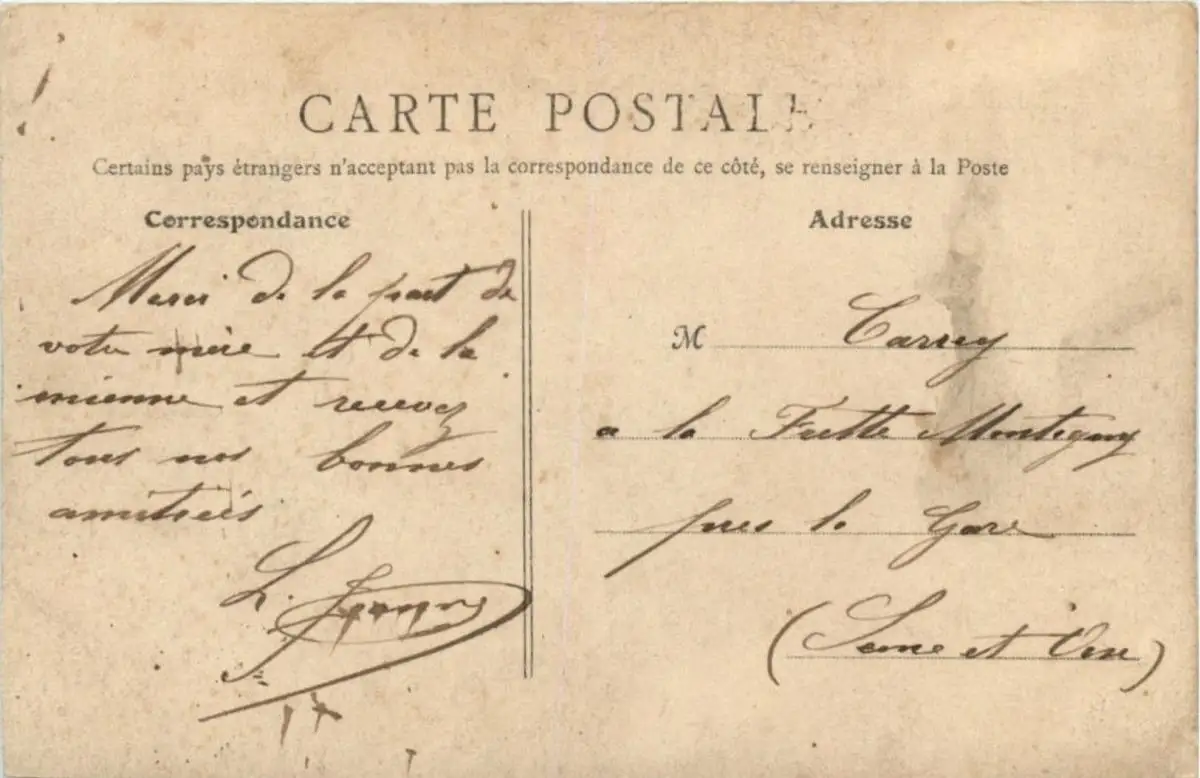 CARTE POSTALE
Certains pays étrangers n'acceptant pas la correspondance de ce côté, se renseigner à la Poste
Correspondance
Adresse
Merci de la part de
votre mère et de la
mienne et recevez
tous nos bonnes
amitiés
L.
M Carrey
a la Frette Montigny
pres la Gare
(Seine et Oise)